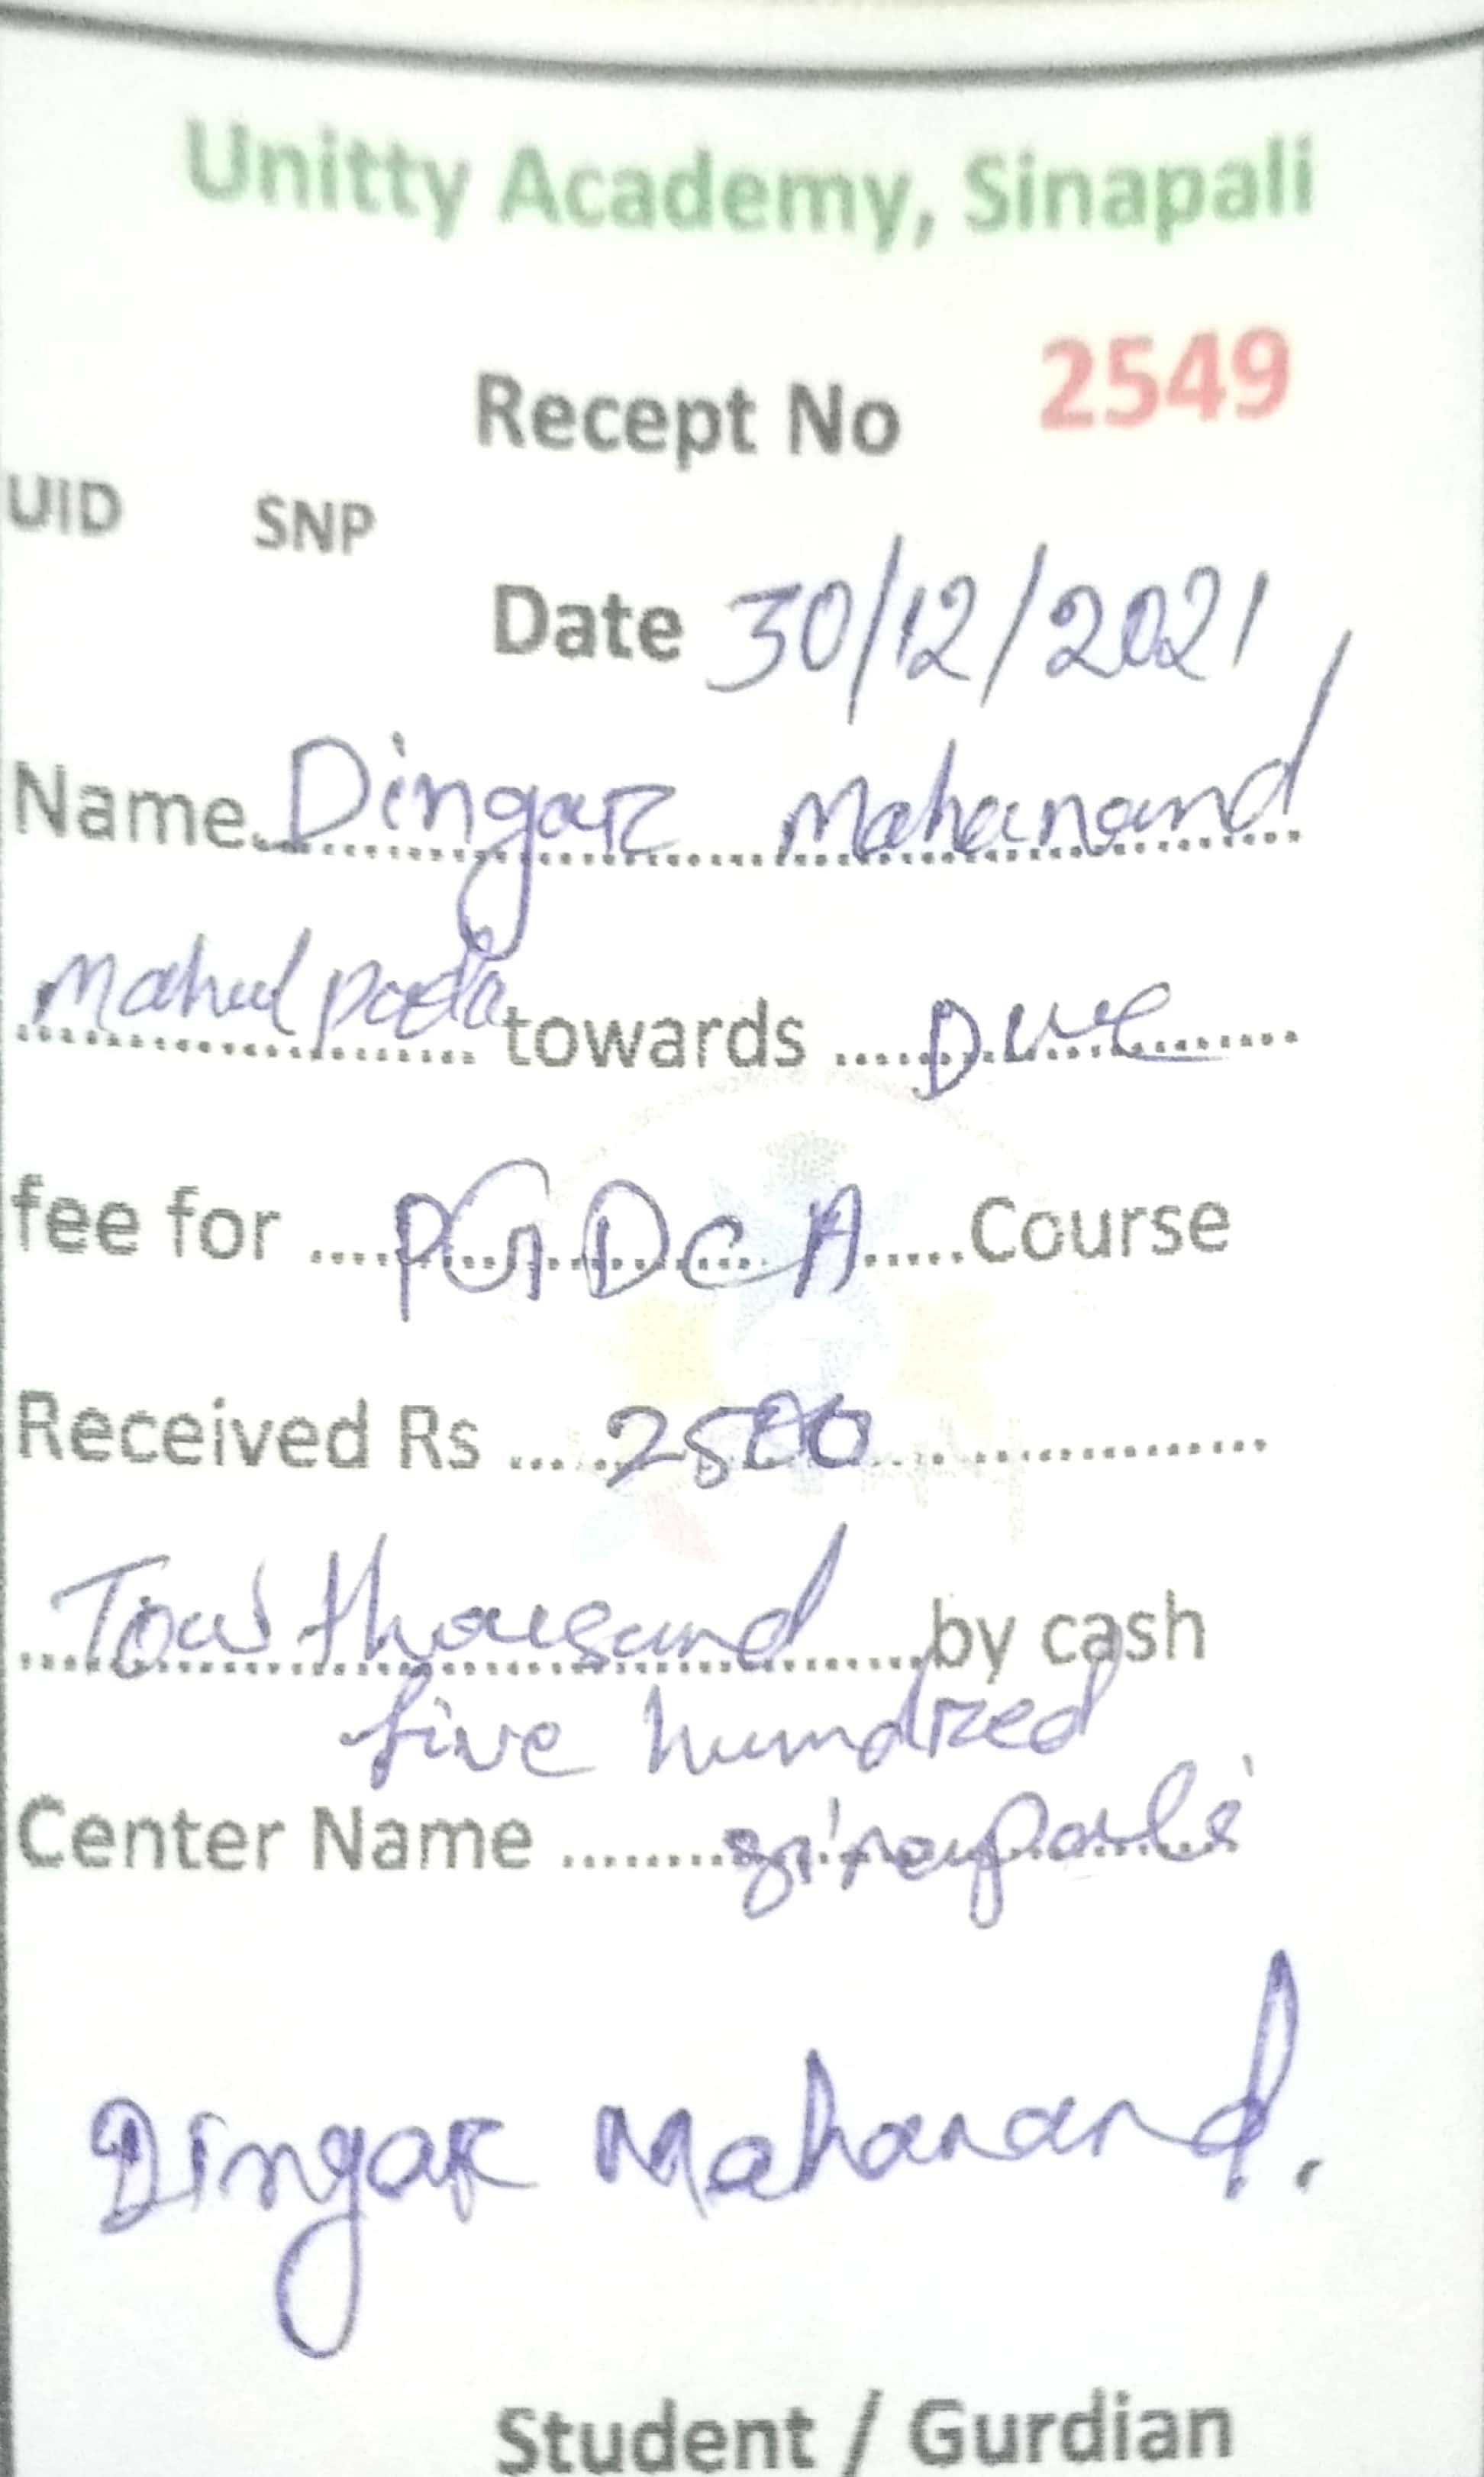 Unitty Academy, Sinapali
Recept No 2549
UID SNP
Date 30/12/2021
Name Dingar Mahanand
Mahulpada towards Due
fee for PGDCA Course
Received Rs 2500
Tow thousand by cash
five hundred
Center Name sinapali
Dingar Mahanand.
Student / Gurdian